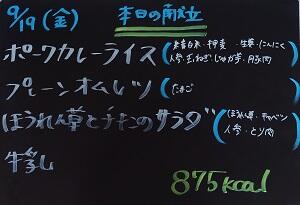 9/19(金) 本日の献立
ポークカレーライス(麦・白米・押麦・生姜・にんにく
人参・玉ねぎ・じゃが芋・豚肉)
プレーンオムレツ(たまご)
ほうれん草とチキンのサラダ(ほうれん草・キャベツ
人参・とり肉)
牛乳
875kcal